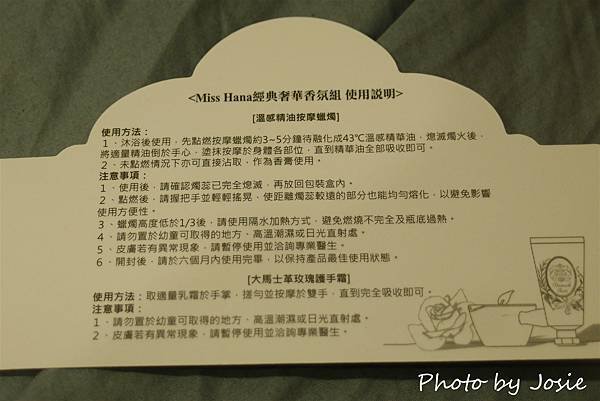 <Miss Hana經典奢華香氛組 使用說明>
[溫感精油按摩蠟燭]
使用方法：
1、沐浴後使用，先點燃按摩蠟燭約3~5分鐘待融化成43℃溫感精華油，熄滅燭火後，
將適量精油倒於手心，塗抹按摩於身體各部位，直到精華油全部吸收即可。
2、未點燃情況下亦可直接沾取，作為香膏使用。
注意事項：
1、使用後，請確認燭蕊已完全熄滅，再放回包裝盒內。
2、點燃後，請握把手並輕輕搖晃、使距離燭蕊較遠的部分也能均勻熔化，以避免影響
使用方便性。
3、蠟燭高度低於1/3後，請使用隔水加熱方式，避免燃燒不完全及瓶底過熱。
4、請勿置於幼童可取得的地方、高溫潮濕或日光直射處。
5、皮膚若有異常現象，請暫停使用並洽詢專業醫生。
6、開封後，請於六個月內使用完畢，以保持產品最佳使用狀態。
[大馬士革玫瑰護手霜]
使用方法：取適量乳霜於手掌，搓勻並按摩於雙手，直到完全吸收即可。
注意事項：
1、請勿置於幼童可取得的地方、高溫潮濕或日光直射處。
2、皮膚若有異常現象，請暫停使用並洽詢專業醫生。
Photo by Josie